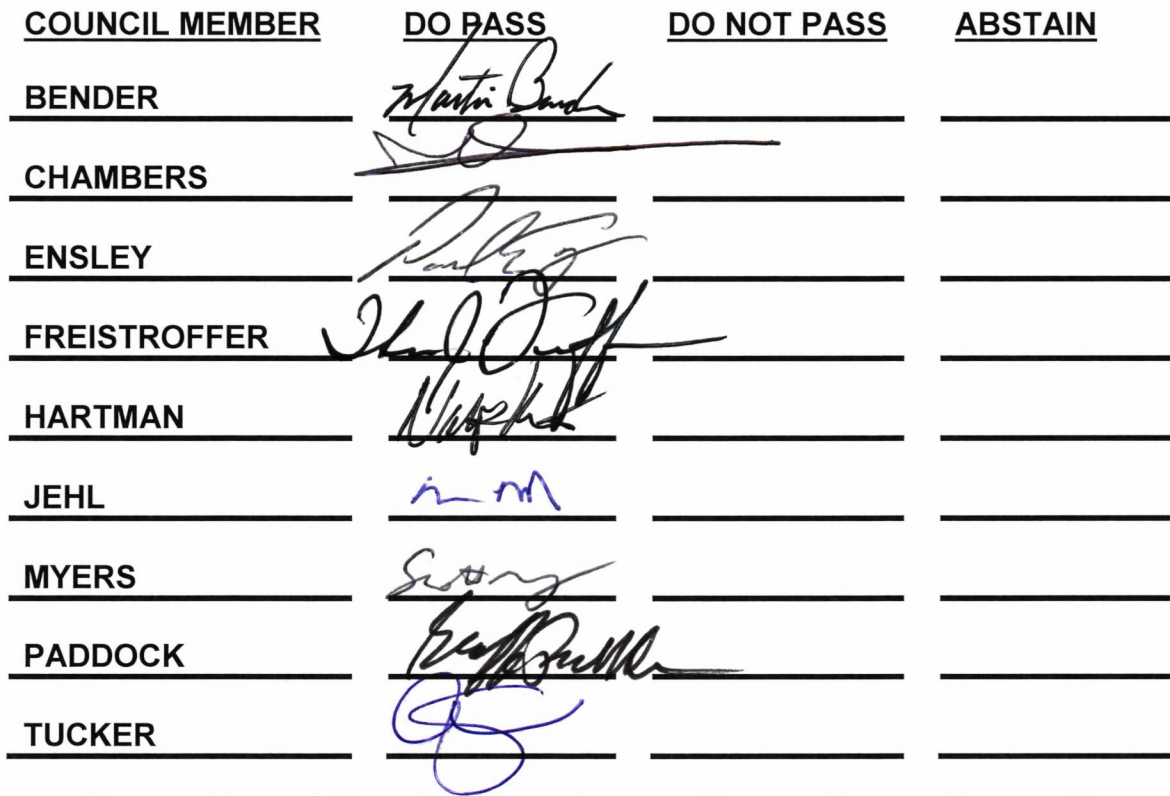 COUNCIL MEMBER DO PASS DO NOT PASS ABSTAIN
BENDER Martin Bender
CHAMBERS
ENSLEY Paul
FREISTROFFER
HARTMAN
JEHL
MYERS Scott
PADDOCK Geoff Paddock
TUCKER